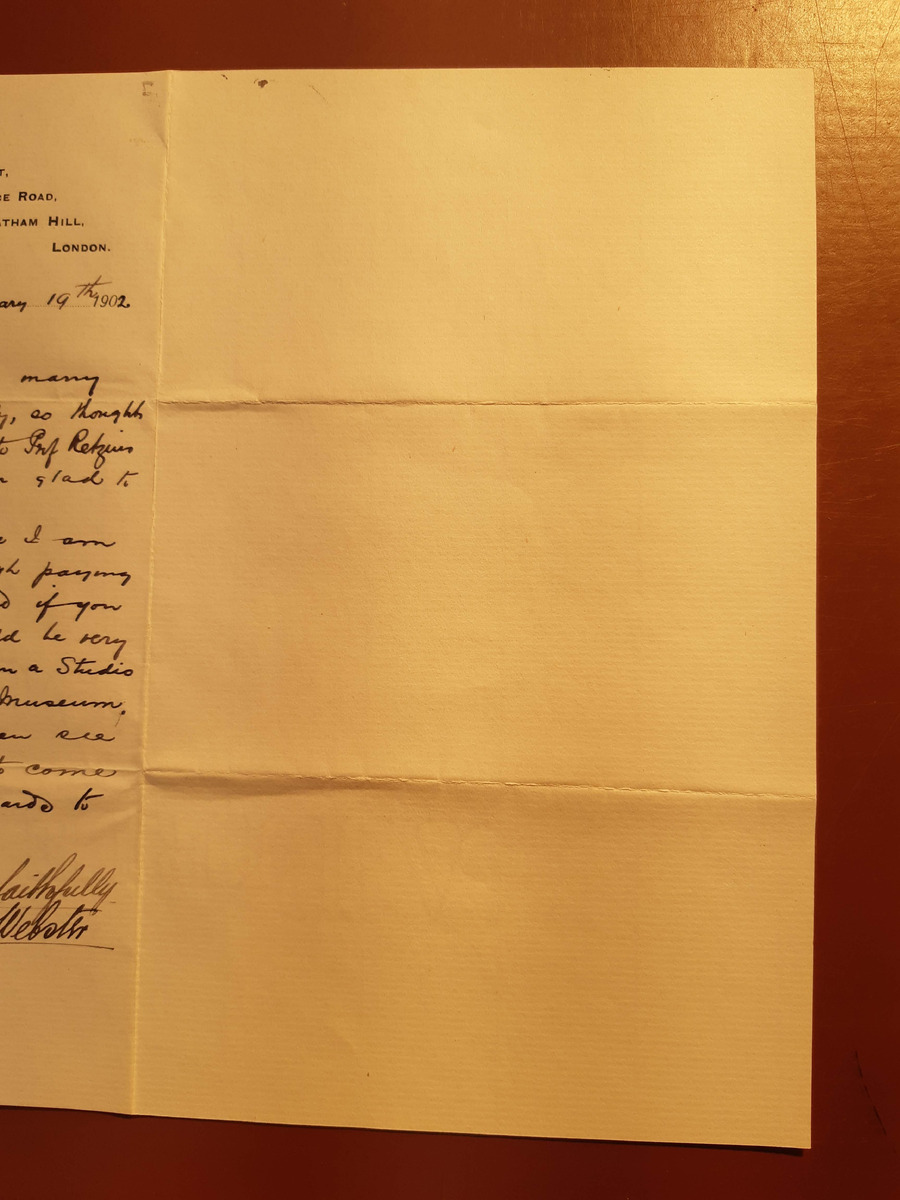 T,
CE ROAD,
ATHAM HILL,
LONDON.
ary 19th 1902.
many
y, so thought
to Prof Retzius
glad to
I am
gh paying
d if you
ld be very
n a Studio
Museum.
en see
to come
ards to
faithfully
Webster